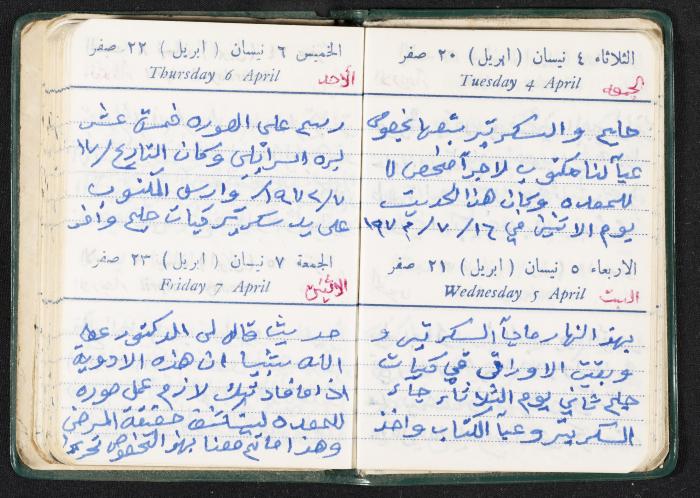 الثلاثاء ٤ نيسان ( ابريل ) ٢٠ صفر
Tuesday 4 April
الجمعه
حليم و السكرتير بتبعها بخصوص
عبأ لنا مكتوب لاجرآ فحص لا
للمعده وكان هذا الحديث
يوم الاثنين في ١٦ / ٧ / ١٩٧٣
الاربعاء ٥ نيسان ( ابريل ) ٢١ صفر
Wednesday 5 April
السبت
بهذ النهار ماجآ السكرتير و
وبقت الاوراق في كبيات
حليم ثاني يوم الثلاثاء جاء
السكرتير وعبآ الكتاب واخذ
الخميس ٦ نيسان ( ابريل ) ٢٢ صفر
Thursday 6 April
الأحد
رسم على الصوره خمسة عشر
ليره اسرائيلي وكان التاريخ /١٧
١٩٧٢/٧/ وارسل المكتوب
على يد سكرتير كبيات حليم واخر
الجمعة ٧ نيسان ( ابريل ) ٢٣ صفر
Friday 7 April
الاثنين
حديث قاله لي الدكتور عطا
الله ان هذه الادوية
اذا ما فادتك لازم عمل صوره
للمعده ليكشف حقيقة المرض
وهذا ما تم معنا بهذ الخصوص